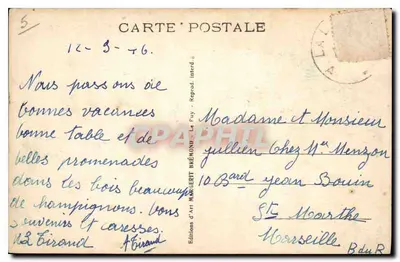 5
CARTE POSTALE
12-9-76
Nous passons de
bonnes vacances
bonne table et de
belles promenades
dans les bois beaucoup
de champignons. Vous
souvenirs et caresses.
Tirand
A Tirand
Editions d'Art MARGERIT BRÉMOND, Le Puy - Reprod. interd.
Madame et Monsieur
Jullien Chez Mr Menzon
10 Bard Jean Bouin
Ste Marthe
Marseille
B du R